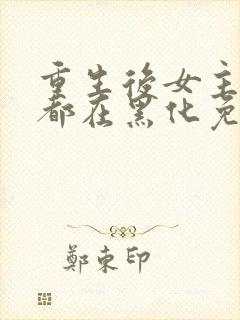 重生後女主
都在黑化免
鄭束印